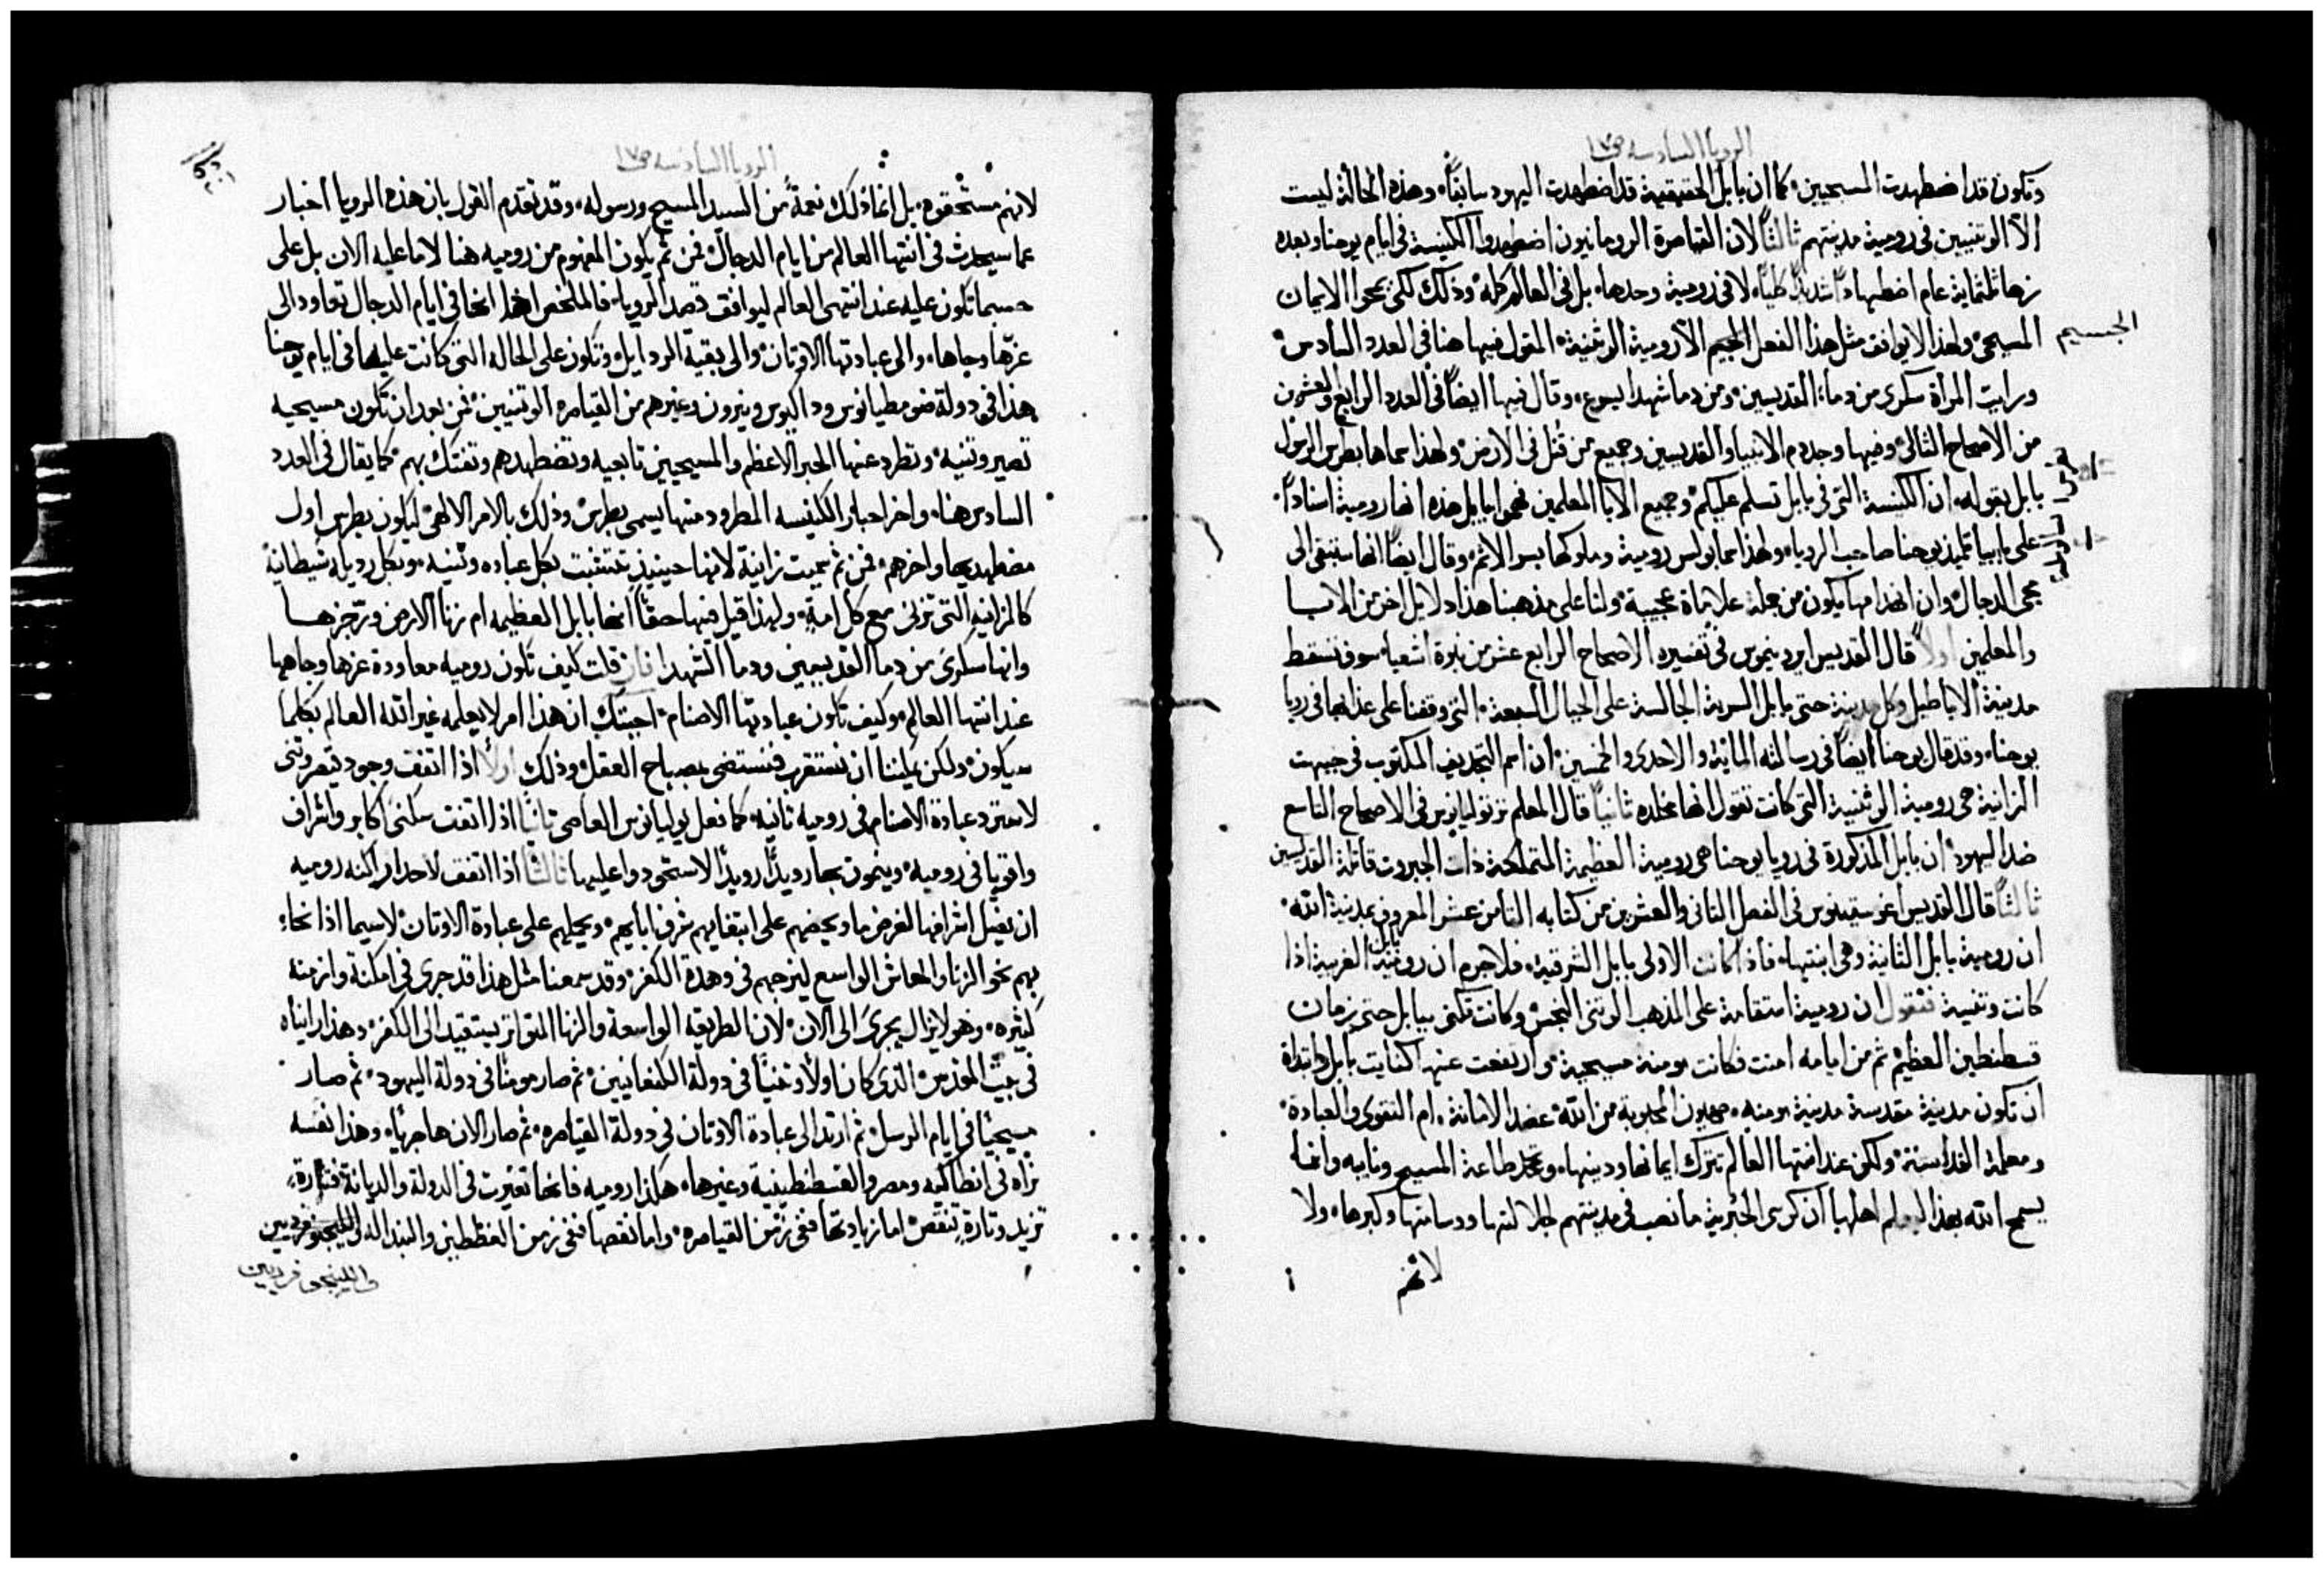 الرويا السادسه ص١٧
وتكون قد اضطهدت المسيحيين كما ان بابل الحقيقية قد اضطهدت اليهود سابقاً وهذه الحالة ليست
الا الوثنيين في رومية مدينتهم ثالثاً لان القياصرة الرومانيون اضطهدوا الكنيسة في ايام يوحنا وبعده
زها ثلثماية عام اضطهاداً شديداً لا في رومية وحدها بل في العالم كله وذلك لكى يمحوا الايمان
المسيحي ولهذا لا يوافق مثل هذا الفعل الجسيم الا رومية الوثنية المقول فيها هنا في العدد السادس
الجسيم
ورايت المراة سكرى من دماء القديسين ومن دما شهدا يسوع وقال فيها ايضاً في العدد الرابع والعشرين
من الاصحاح التالى وفيها وجد دم الانبيا والقديسين وجميع من قُتل في الارض ولهذا سماها بطرس الرسول
بابل بقوله ان الكنيسة التي في بابل تسلم عليكم وجميع الابا المعلمين فهموا بابل هذه انها رومية اسناداً
على بابيا تلميذ يوحنا صاحب الرويا ولهذا سما بولس رومية وملوكها بسر الاثم وقال ايضاً انها ستبقى الى
مجى الدجال وان انهدامها يكون من جملة علامات عجيبة ولنا على مذهبنا هذا دلايل اخر من الابا
والمعلمين اولاً قال القديس ايرونيموس في تفسيره الاصحاح الرابع عشر من نبوة اشعيا سوف تسقط
مدينة الاباطيل وكل مدينة حتى بابل السرية الجالسة على الجبال السبعة التي وقفنا على عذابها في رويا
يوحنا وقد قال يوحنا ايضاً في رسالته الماية والاحدى والخمسين ان اسم التجديف المكتوب في جبهت
الزانية هى رومية الوثنية التي كانت تقول انها مخلده ثانياً قال المعلم ترتوليانوس في الاصحاح التاسع
ضد اليهود ان بابل المذكورة في رويا يوحنا هي رومية العظيمة المتملكة ذات الجبروت قاتلة القديسين
ثالثاً قال القديس اغوسطينوس في الفصل الثاني والعشرين من كتابه الثامن عشر المعروف بمدينة الله
ان رومية بابل الثانية وهي ابنتها فاذا كانت الاولى بابل الشرقية فلا جرم ان رومية بابل الغربية اذا
كانت وثنية فنقول ان رومية استقامة على المذهب الوثنى النجس وكانت تكنى ببابل حتى زمان
قسطنطين العظيم ثم من ايامه امنت فكانت مومنة مسيحية وارتفعت عنها كنايت بابل وابتداة
ان تكون مدينة مقدسة مدينة مومنه صهيون المحبوبة من الله عضد الامانة ام التقوى والعبادة
ومعلمة القداسة ولكن عند انتها العالم تترك ايمانها ودينها وتجحد طاعة المسيح ونايبه وانما
يسمح الله بهذا ليعلم اهلها ان كرسى الحبرية ما نصب في مدينتهم لجلالتها وسامتها وكبرها ولا
لانهم
الرويا السادسه ص١٧
لانهم مستحقوه بل انما ذلك نعمة من السيد المسيح ورسوله وقد تقدم القول بان هذه الرويا اخبار
عما سيحدث في انتها العالم من ايام الدجال فمن ثم يكون المفهوم من روميه هنا لا ما عليه الان بل على
حسبما تكون عليه عند انتهى العالم ليوافق قصد الرويا فالملخص اذاً انها في ايام الدجال تعاود الى
عزها وجاها والى عبادتها الاوثان والى بقية الردايل وتكون على الحاله التي كانت عليها في ايام يوحنا
هذا في دولة ضومطيانوس وداكيوس ونيرون وغيرهم من القياصره الوثنيين فمن بعد ان تكون مسيحيه
تصير وثنيه وتطرد عنها الحبر الاعظم والمسيحيين تابعيه وتضطهدهم وتفتك بهم كما يقال في العدد
السادس هنا واخر احبار الكنيسه المطرود منها يسمى بطرس وذلك بالامر الالهي ليكون بطرس اول
مضطهديها واخرهم فمن ثم سميت زانية لانها حينيذ تتشبث بكل عباده وثنيه وبكل رديله شيطانية
كالزانيه التي تزنى مع كل امة ولهذا قيل فيها حقاً انها بابل العظيمه ام زنا الارض ورجزها
وانها سكرى من دما القديسين ودما الشهدا فان قلت كيف تكون روميه معاودة عزها وجاهها
عند انتها العالم وكيف تكون عبادتها الاصنام اجبتك ان هذا امر لا يعلمه غير الله العالم بكلما
سيكون ولكن يمكننا ان نستقرب فنستضى بمصباح العقل وذلك اولاً اذا اتفق وجود قيصر وثنى
لاسترد عبادة الاصنام في روميه ثانيه كما فعل يوليانوس العاصى ثانياً اذا اتفقت سكنى اكابر واشراف
واقويا في روميه وينمون بها رويداً رويداً لاستحودوا عليها ثالثاً اذا اتفق لاحد اراكنه روميه
ان يميل اشرافها لغرض ما ويحضهم على ابتغايهم شرف ابايهم ويحملهم على عبادة الاوثان لاسيما اذا نحاء
بهم نحو الزنا والمعاش الواسع ليزجهم في وهدة الكفر وقد سمعنا مثل هذا قد جرى في امكنة وازمنه
كثيره وهو لا يزال يجرى الى الان لان الطريقه الواسعة والزنا المتواتر يستقيد الى الكفر وهذا رايناه
في بيت المقدس الذي كان اولاً وثنياً في دولة الكنعانيين ثم صار مومناً في دولة اليهود ثم صار
مسيحياً في ايام الرسل ثم ارتد الى عبادة الاوثان في دولة القياصره ثم صار الان هاجرياً وهذا نفسه
نراه في انطاكيه ومصر والقسطنطينية وغيرها هكذا روميه فانها تغيرت في الدولة والديانة فتارة
تزيد وتارة تنقص اما زيادتها ففي زمن القياصره واما نقصها ففي زمن القنطلين والبندال